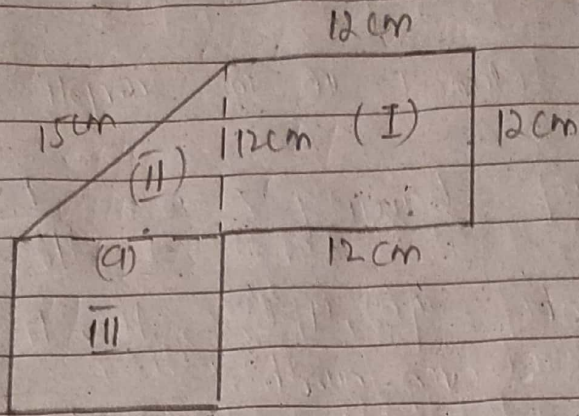 12cm
15cm
12cm (I) 12cm
(II)
(a) 12cm
III